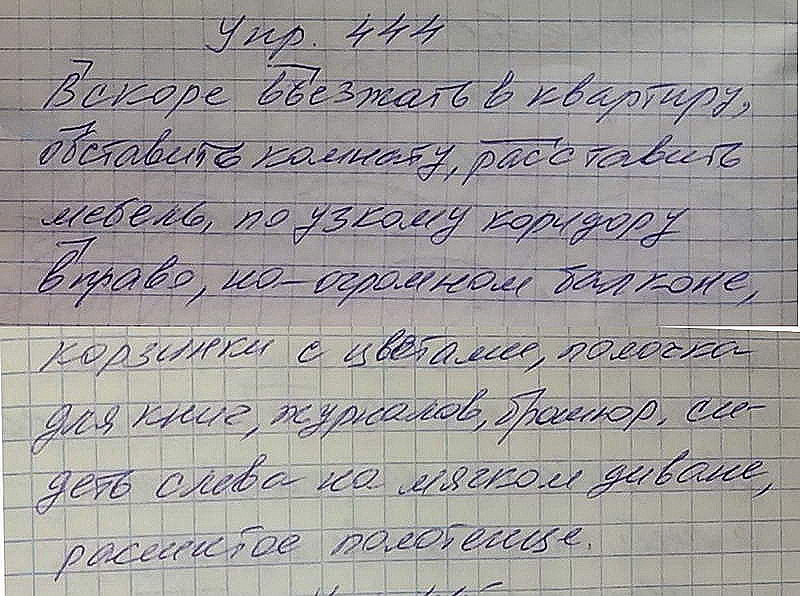 Упр. 444
Вскоре въезжать в квартиру,
обставить комнату, расставить
мебель, по узкому коридору
вправо, на огромном балконе,
корзинки с цветами, полочка
для книг, журналов, брошюр, си-
деть слева на мягком диване,
расшитое полотенце.